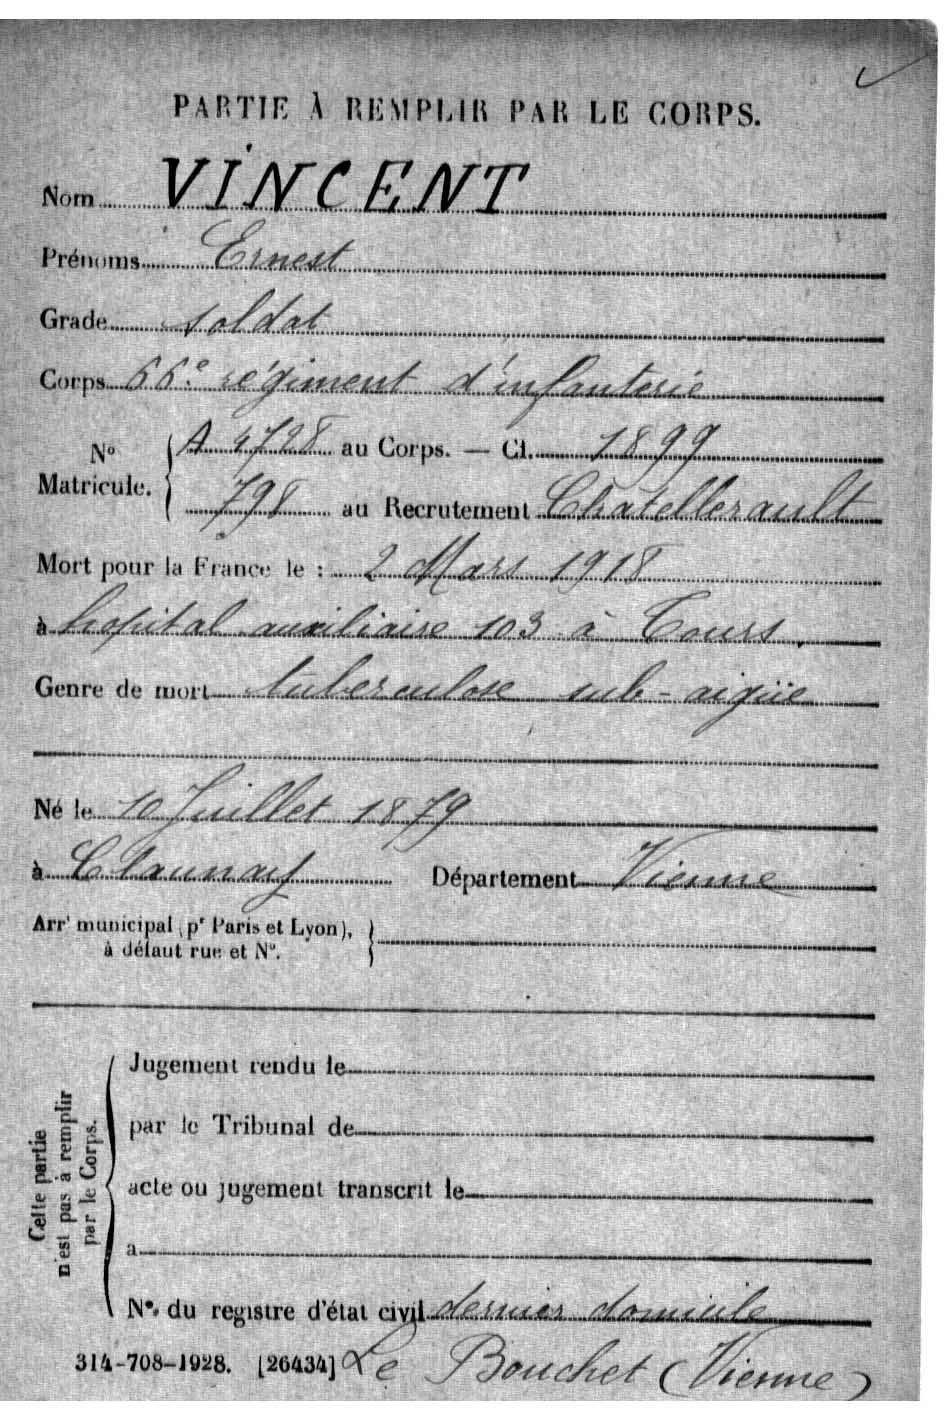 PARTIE À REMPLIR PAR LE CORPS.
Nom VINCENT
Prénoms Ernest
Grade soldat
Corps 66e régiment d'infanterie
No Matricule. { A 4728 au Corps. — Cl. 1899
798 au Recrutement Chatellerault
Mort pour la France le : 2 Mars 1918
à hopital auxiliaire 103 à Tours.
Genre de mort tuberculose sub-aigüe
Né le 10 Juillet 1879
à Claunay Département Vienne
Arrt municipal (pr Paris et Lyon), à défaut rue et No. }
Cette partie n'est pas à remplir par le Corps. {
Jugement rendu le
par le Tribunal de
acte ou jugement transcrit le
à
No. du registre d'état civil dernier domicile
314-708-1928. [26434] Le Bouchet (Vienne)